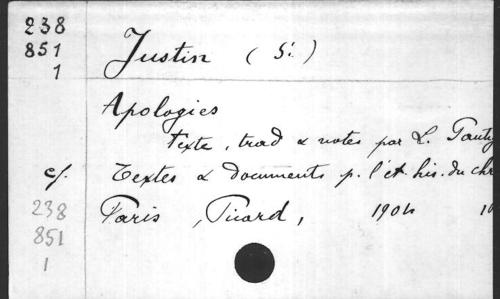 238
851
1
Justin (S:)
Apologies
texte, trad & notes par L. Pauty
cf. Textes & Documents p. l'ét. his. du chr
238
851
1
Paris, Picard, 1904 10